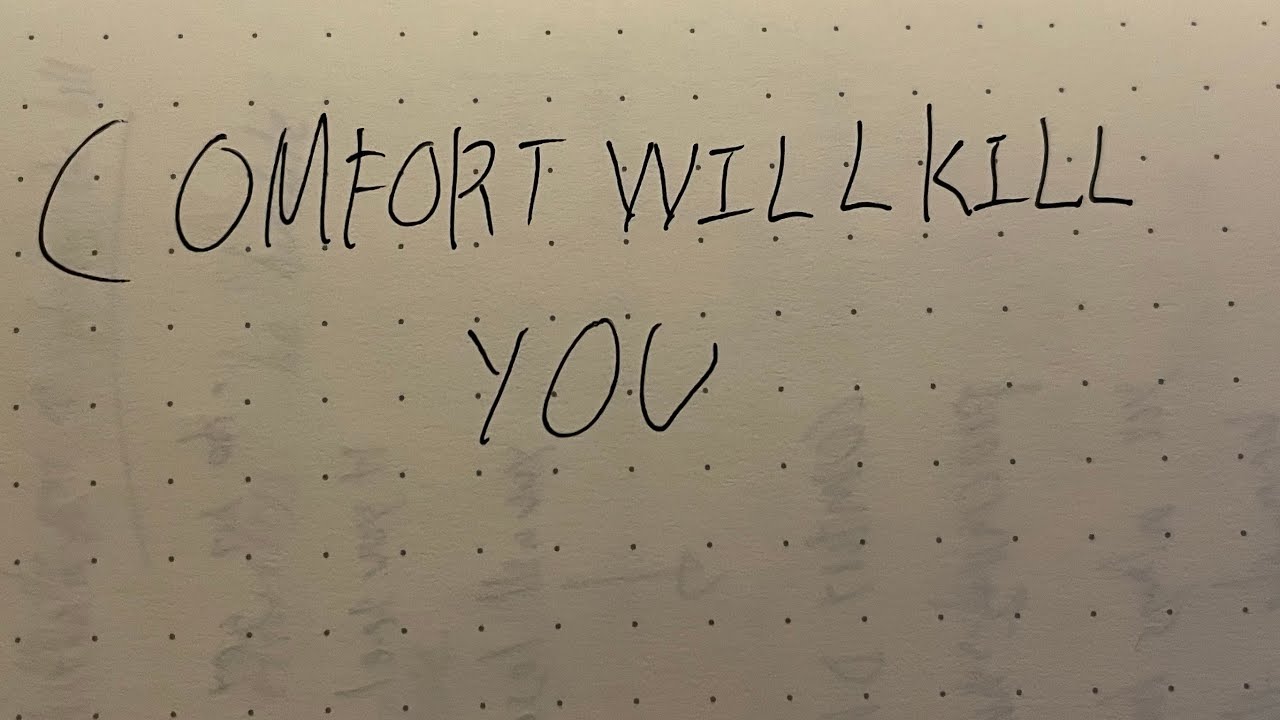 COMFORT WILL KILL
YOU